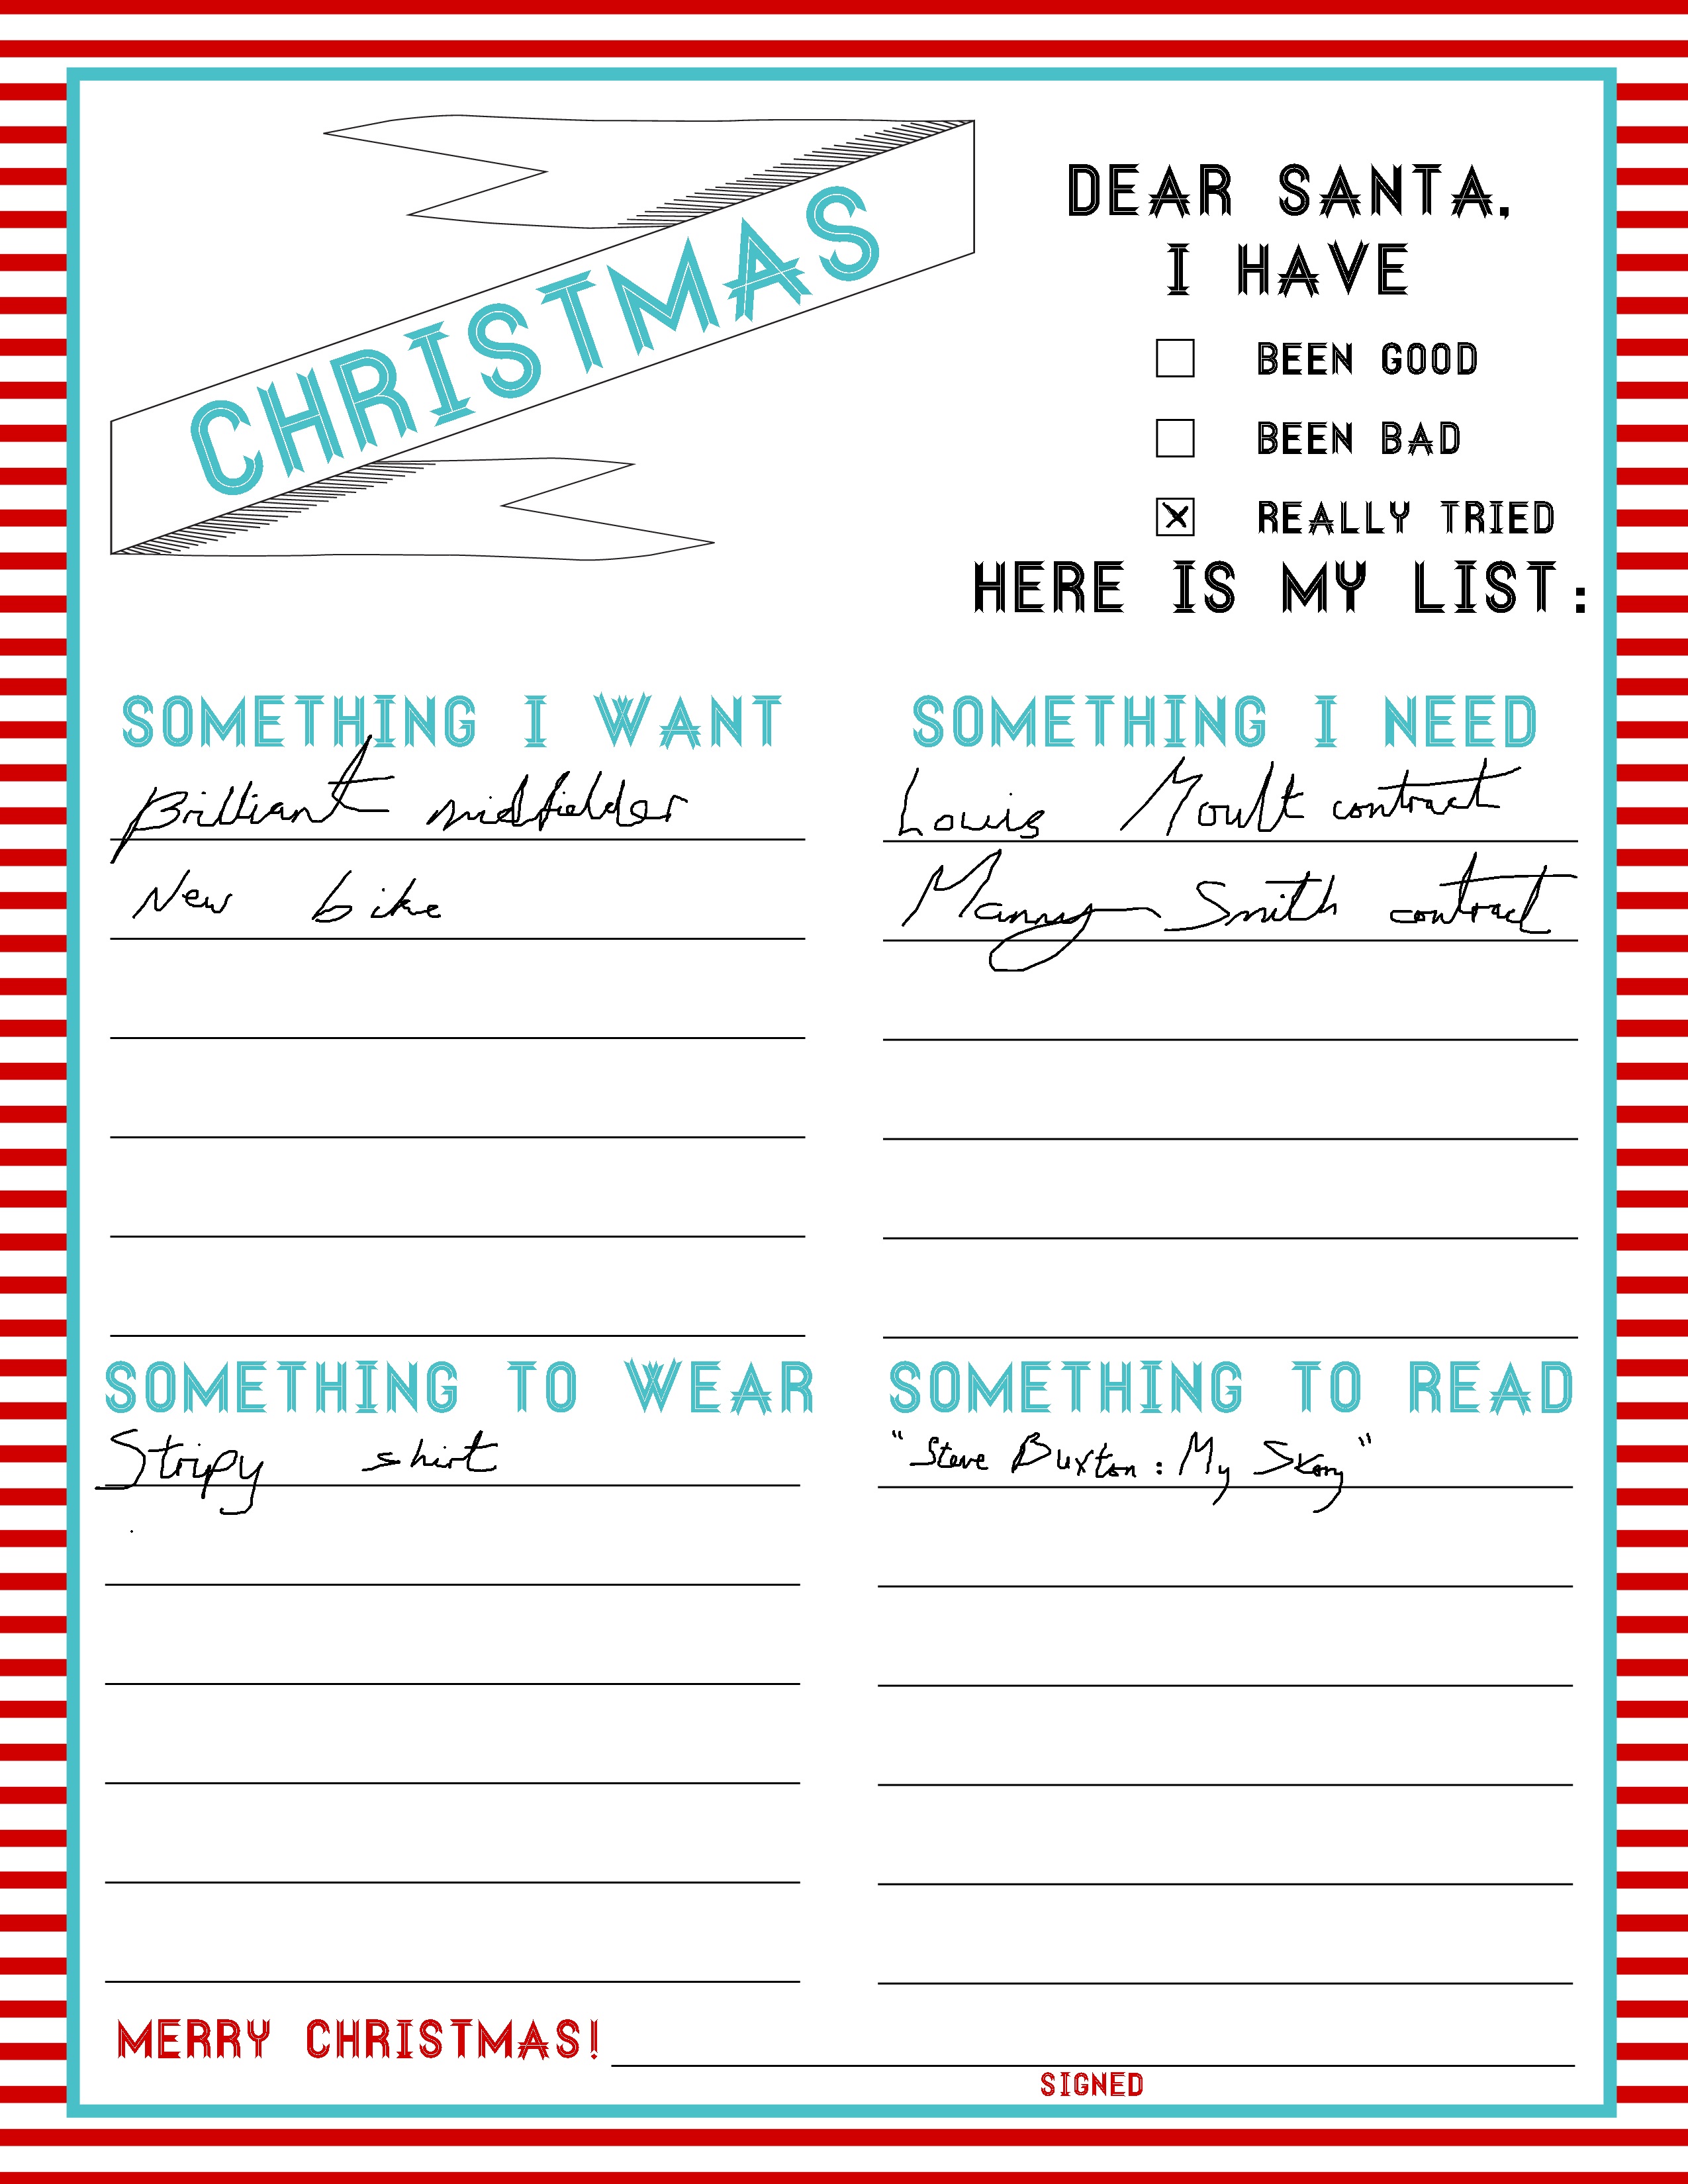 CHRISTMAS
DEAR SANTA,
I HAVE
BEEN GOOD
BEEN BAD
REALLY TRIED
HERE IS MY LIST:
SOMETHING I WANT
Brilliant midfielder
New bike
SOMETHING I NEED
Louis Moult contract
Manny Smith contract
SOMETHING TO WEAR
Stripy shirt
SOMETHING TO READ
"Steve Buxton: My Story"
MERRY CHRISTMAS!
SIGNED